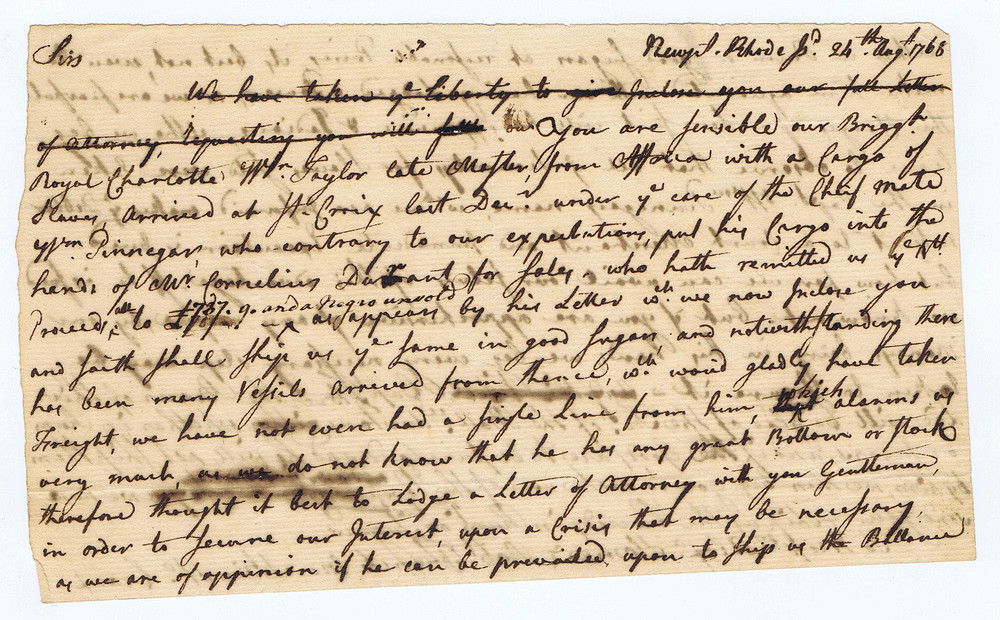 Sirs Newpt. Rhode Isd. 24th Augt. 1763
We have taken ye Liberty to give Inclose you our full Letter
of Attorney, requesting you will You are sensible our Briggtn.
Royal Charlotte Wm. Taylor late Master, from Affrica with a Cargo of
Slaves, Arrived at St. Croix last Decr. under ye care of the Chief Mate
Wm. Pinnegar, who contrary to our expectations, put his Cargo into the
hands of Mr. Cornelius Durant for Sales. who hath remitted us ye Ntt.
Proceeds, to £737. 9. and a Negro unsold as appears by his Letter wch. we now Inclose you
and saith shall ship us ye same in good Sugars, and notwithstanding there
has been many Vessils arrived from thence, wch. would gladly have taken
Freight, we have not even had a single Line from him, which alarms us
very much, as we do not know that he has any great Bottom or stock
therefore thought it best to Lodge a Letter of Attorney with you Gentleman,
in order to secure our Interest, upon a Crisis that may be necessary,
as we are of oppinion if he can be prevailed upon to ship us the Ballance